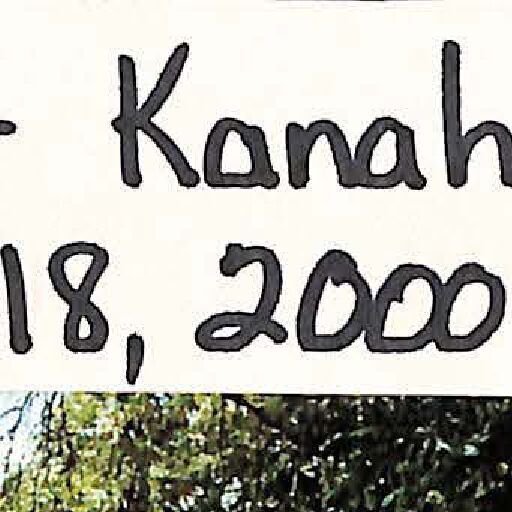 - Kanah
18, 2000